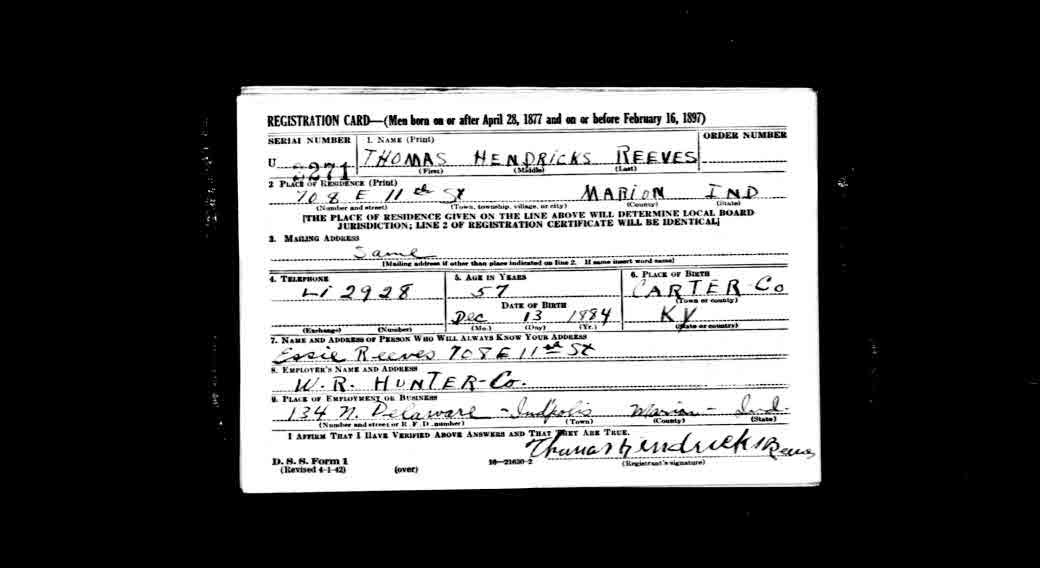 REGISTRATION CARD—(Men born on or after April 28, 1877 and on or before February 16, 1897)
SERIAL NUMBER 1. NAME (Print) ORDER NUMBER
U 3271 THOMAS HENDRICKS REEVES
(First) (Middle) (Last)
2 PLACE OF RESIDENCE (Print)
708 E 11th St MARION IND
(Number and street) (Town, township, village, or city) (County) (State)
[THE PLACE OF RESIDENCE GIVEN ON THE LINE ABOVE WILL DETERMINE LOCAL BOARD
JURISDICTION; LINE 2 OF REGISTRATION CERTIFICATE WILL BE IDENTICAL]
3. MAILING ADDRESS
Same
[Mailing address if other than place indicated on line 2. If same insert word same]
4. TELEPHONE 5. AGE IN YEARS 6. PLACE OF BIRTH
Li 2928 57 CARTER-Co
DATE OF BIRTH (Town or county)
Dec 13 1884 KY
(Exchange) (Number) (Mo.) (Day) (Yr.) (State or country)
7. NAME AND ADDRESS OF PERSON WHO WILL ALWAYS KNOW YOUR ADDRESS
Essie Reeves 708 E 11th St
8. EMPLOYER'S NAME AND ADDRESS
W. R. HUNTER-Co.
9. PLACE OF EMPLOYMENT OR BUSINESS
134 N. Delaware - Indpolis Marion - Ind.
(Number and street or R. F. D. number) (Town) (County) (State)
I AFFIRM THAT I HAVE VERIFIED ABOVE ANSWERS AND THAT THEY ARE TRUE.
Thomas Hendricks Reeves
D. S. S. Form 1
(Revised 4-1-42) (over) 16—21630-2 (Registrant's signature)